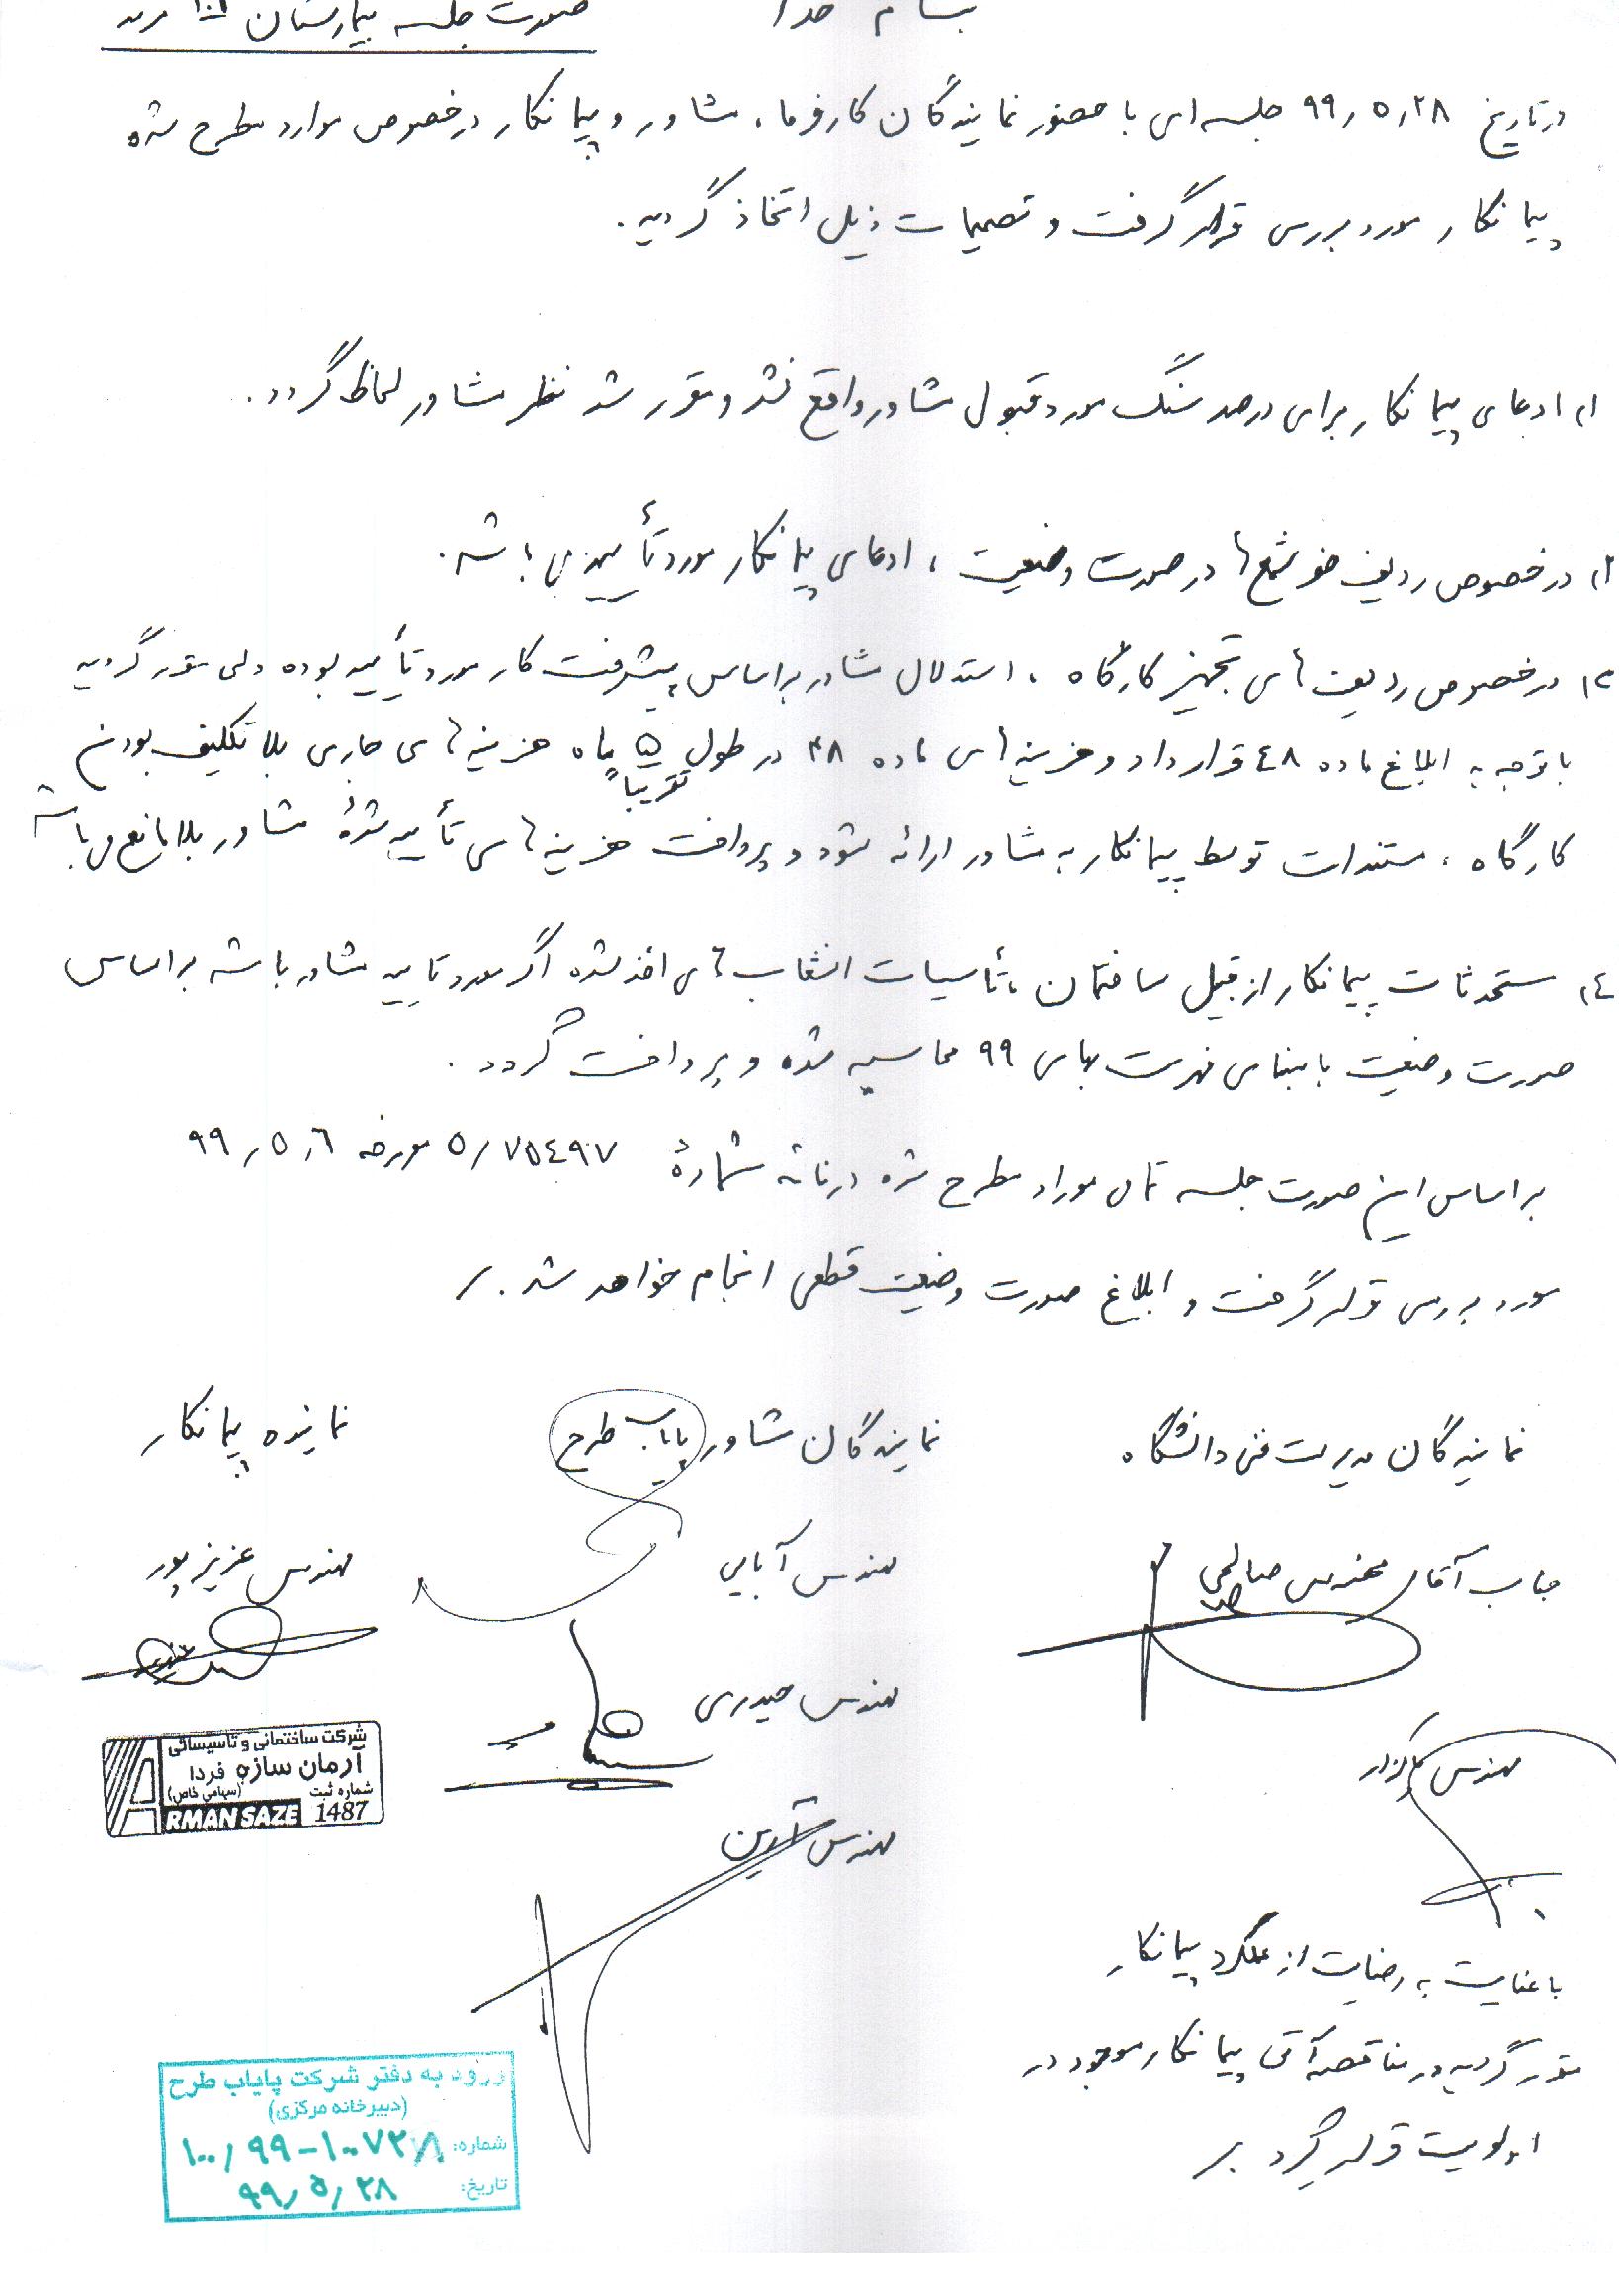 بنام خدا
صورت جلسه بیمارستان
در تاریخ ۹۹٫۵٫۲۸ جلسه ای با حضور نمایندگان کارفرما، مشاور و پیمانکار در خصوص موارد مطرح شده
پیمانکار مورد بررسی قرار گرفت و تصمیمات ذیل اتخاذ گردید.
۱) ادعای پیمانکار برای درصد سنگ مورد قبول مشاور واقع نشد و مقرر شد نظر مشاور لحاظ گردد.
۲) در خصوص ردیف ها در صورت وضعیت، ادعای پیمانکار مورد تأیید می باشد.
۳) در خصوص ردیف های تجهیز کارگاه، استدلال مشاور براساس پیشرفت کار مورد تأیید بوده ولی مقرر گردید
با توجه به ابلاغ ماده ۴۸ قرارداد و هزینه های ماده ۴۸ در طول تقریباً ۵ ماه هزینه های جاری بلاتکلیف بودن
کارگاه، مستندات توسط پیمانکار به مشاور ارائه شود و پرداخت هزینه های تأیید شدۀ مشاور بلامانع می باشد
۴) مستحدثات پیمانکار از قبیل ساختمان، تأسیسات انشعاب های اخذ شده اگر مورد تایید مشاور باشد براساس
صورت وضعیت با مبنای فهرست بهای ۹۹ محاسبه شده و پرداخت گردد.
براساس این صورت جلسه تمامی موارد مطرح شده در نامه شمارۀ ۵٫۷۵۴۹۷ مورخه ۹۹٫۵٫۶
مورد بررسی قرار گرفت و ابلاغ صورت وضعیت قطعی انجام خواهد شد.
نمایندگان مدیریت فنی دانشگاه
نمایندگان مشاور پایاب طرح
نماینده پیمانکار
جناب آقای مهندس صالحی
مهندس آبایی
مهندس عزیزپور
مهندس حیدری
مهندس
مهندس آرین
شرکت ساختمانی و تاسیساتی
آرمان سازه فردا
(سهامی خاص) شماره ثبت
ARMAN SAZE 1487
با عنایت به رضایت از عملکرد پیمانکار
مقرر گردید در مناقصه آتی پیمانکار موجود در
اولویت قرار گیرد.
ورود به دفتر شرکت پایاب طرح
(دبیرخانه مرکزی)
شماره: ۱۰۰٫۹۹-۱۰۷۲۸
تاریخ: ۹۹٫۵٫۲۸